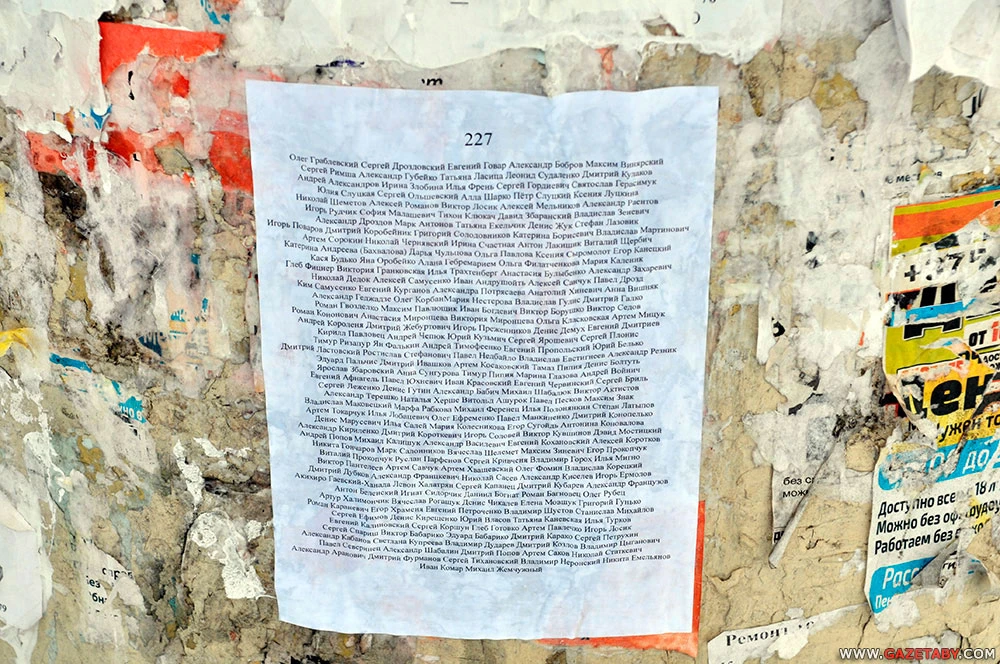 227
Олег Граблевский Сергей Дрозловский Евгений Говар Александр Бобров Максим Винярский
Сергей Римша Александр Губейко Татьяна Ласица Леонид Судаленко Дмитрий Кулаков
Андрей Александров Ирина Злобина Илья Френь Сергей Гордиевич Святослав Герасимук
Юлия Слуцкая Сергей Ольшевский Алла Шарко Петр Слуцкий Ксения Луцкина
Николай Шеметов Алексей Романов Виктор Лосик Алексей Мельников Александр
Игорь Рудчик София Малашевич Тихон Клюкач Давид Збаранский Владислав Зеневич
Александр Дроздов Марк Антонов Татьяна Екельчик Денис Жук Стефан Лазовик
Игорь Поваров Дмитрий Коробейник Григорий Солодовников Катерина Борисевич Владислав Мартинович
Артем Сорокин Николай Чернявский Ирина Счастная Антон Лакишик Виталий Щербич
Катерина Андреева (Бахвалова) Дарья Чульцова Ольга Павлова Ксения Сыромолот Егор Канецкий
Кася Будько Яна Оробейко Алана Гебремарием Ольга Филатченкова Мария Каленик
Глеб Фицнер Виктория Гранковская Илья Трахтенберг Анастасия Булыбенко Александр Захаревич
Николай Дедок Алексей Самусенко Иван Андрушойть Алексей Санчук Павел Дрозд
Ким Самусенко Евгений Курганов Александра Потрясаева Анатолий Хиневич Анна Вишняк
Александр Геджадзе Олег КорбанМария Нестерова Владислав Гулис Дмитрий Гадко
Роман Гвозделко Максим Павлющик Иван Богдевич Виктор Борушко Виктор Седов
Роман Кононович Анастасия Миронцева Виктория Миронцева Ольга Класковская Артем Мицук
Андрей Короленя Дмитрий Жебуртович Игорь Преженников Денис Демух Евгений Дмитриев
Кирилл Павловец Андрей Чепюк Юрий Кузьмич Сергей Ярошевич Сергей Плонис
Тимур Ризапур Ян Фалькин Андрей Тимофеенко Евгений Пропольский Юрий Белько
Дмитрий Ластовский Ростислав Стефанович Павел Небайло Владислав Евстигнеев Александр Резник
Эдуард Пальчис Дмитрий Ивашков Артем Косаковский Тамаз Пипия Денис Болтуть
Ярослав Збаровский Анна Сунгурова Тимур Пипия Марина Глазова Андрей Войнич
Евгений Афнагель Павел Юхневич Иван Красовский Евгений Червинский Сергей Бриль
Сергей Леженко Денис Гутин Александр Бабич Михаил Шабадюк Виктор Актистов
Александр Терешко Наталья Херше Витольд Ашурок Павел Песков Максим Знак
Владислав Маковецкий Марфа Рабкова Михаил Ференец Илья Полонникин Степан Латыпов
Артем Токарчук Илья Лобацевич Олег Ефременко Павел Манкиненко Дмитрий Конопелько
Денис Марусевич Илья Салей Мария Колесникова Егор Сугойдь Антонина Коновалова
Александр Кириленко Дмитрий Короткевич Игорь Соловей Виктор Кувшинов Дэвид Мостицкий
Андрей Попов Михаил Калишук Александр Васильевич Евгений Кохановский Алексей Коротков
Никита Гончаров Марк Салонников Вячеслав Шелемет Максим Зиневич Егор Прокопчук
Виталий Прохондчук Руслан Парфенов Сергей Кривченя Владимир Горох Илья Митко
Виктор Пантелеев Артем Савчук Артем Хващевский Олег Фомин Владислав Корецкий
Дмитрий Дубков Александр Францкевич Николай Сасев Александр Киселев Игорь Ермолов
Акихиро Гаевский-Ханада Левон Халатрян Сергей Капанец Дмитрий Кубарев Александр Французов
Антон Беленский Игнат Сидорчик Даниил Богнат Роман Багновец Олег Рубец
Артур Халимончик Вячеслав Рогащук Денис Чикалев Елена Мовшук Григорий Гунько
Роман Каранкевич Егор Храменя Евгений Петроченко Владимир Шустов Станислав Михайлов
Сергей Ефимов Денис Кирещенко Юрий Власов Татьяна Каневская Илья Турхов
Евгений Калиновский Сергей Коршун Глеб Готовко Артем Павлечко Игорь Лосик
Сергей Спариш Виктор Бабарико Эдуард Бабарико Дмитрий Карако Сергей Петрухин
Александр Кабанов Светлана Купреева Владимир Дударев Дмитрий Козлов Владимир Цыганович
Павел Северинец Александр Шабалин Дмитрий Попов Артем Саков Николай Статкевич
Александр Аранович Дмитрий Фурманов Сергей Тихановский Владимир Неронский Никита Емельянов
Иван Комар Михаил Жемчужный
Доступно все с 18 л
Можно без
Работаем без
Расс
Ремонт
без
можно
WWW.GAZETABY.COM